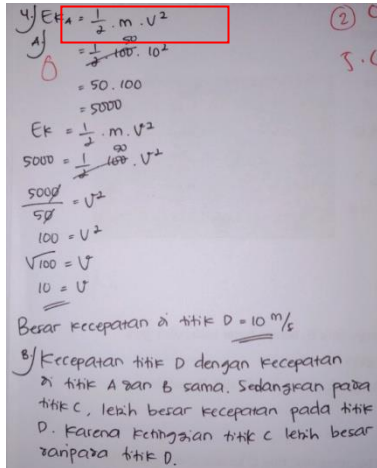 4.) EkA = 1/2 . m . v²
A)
= 1/2 . 100 . 10²
50
= 50 . 100
= 5000
Ek = 1/2 . m . v²
5000 = 1/2 . 100 . v²
50
5000/50 = v²
100 = v²
√100 = v
10 = v
Besar kecepatan di titik D = 10 m/s
B) Kecepatan titik D dengan kecepatan
di titik A dan B sama. Sedangkan pada
titik C, lebih besar kecepatan pada titik
D. Karena ketinggian titik C lebih besar
daripada titik D.
2